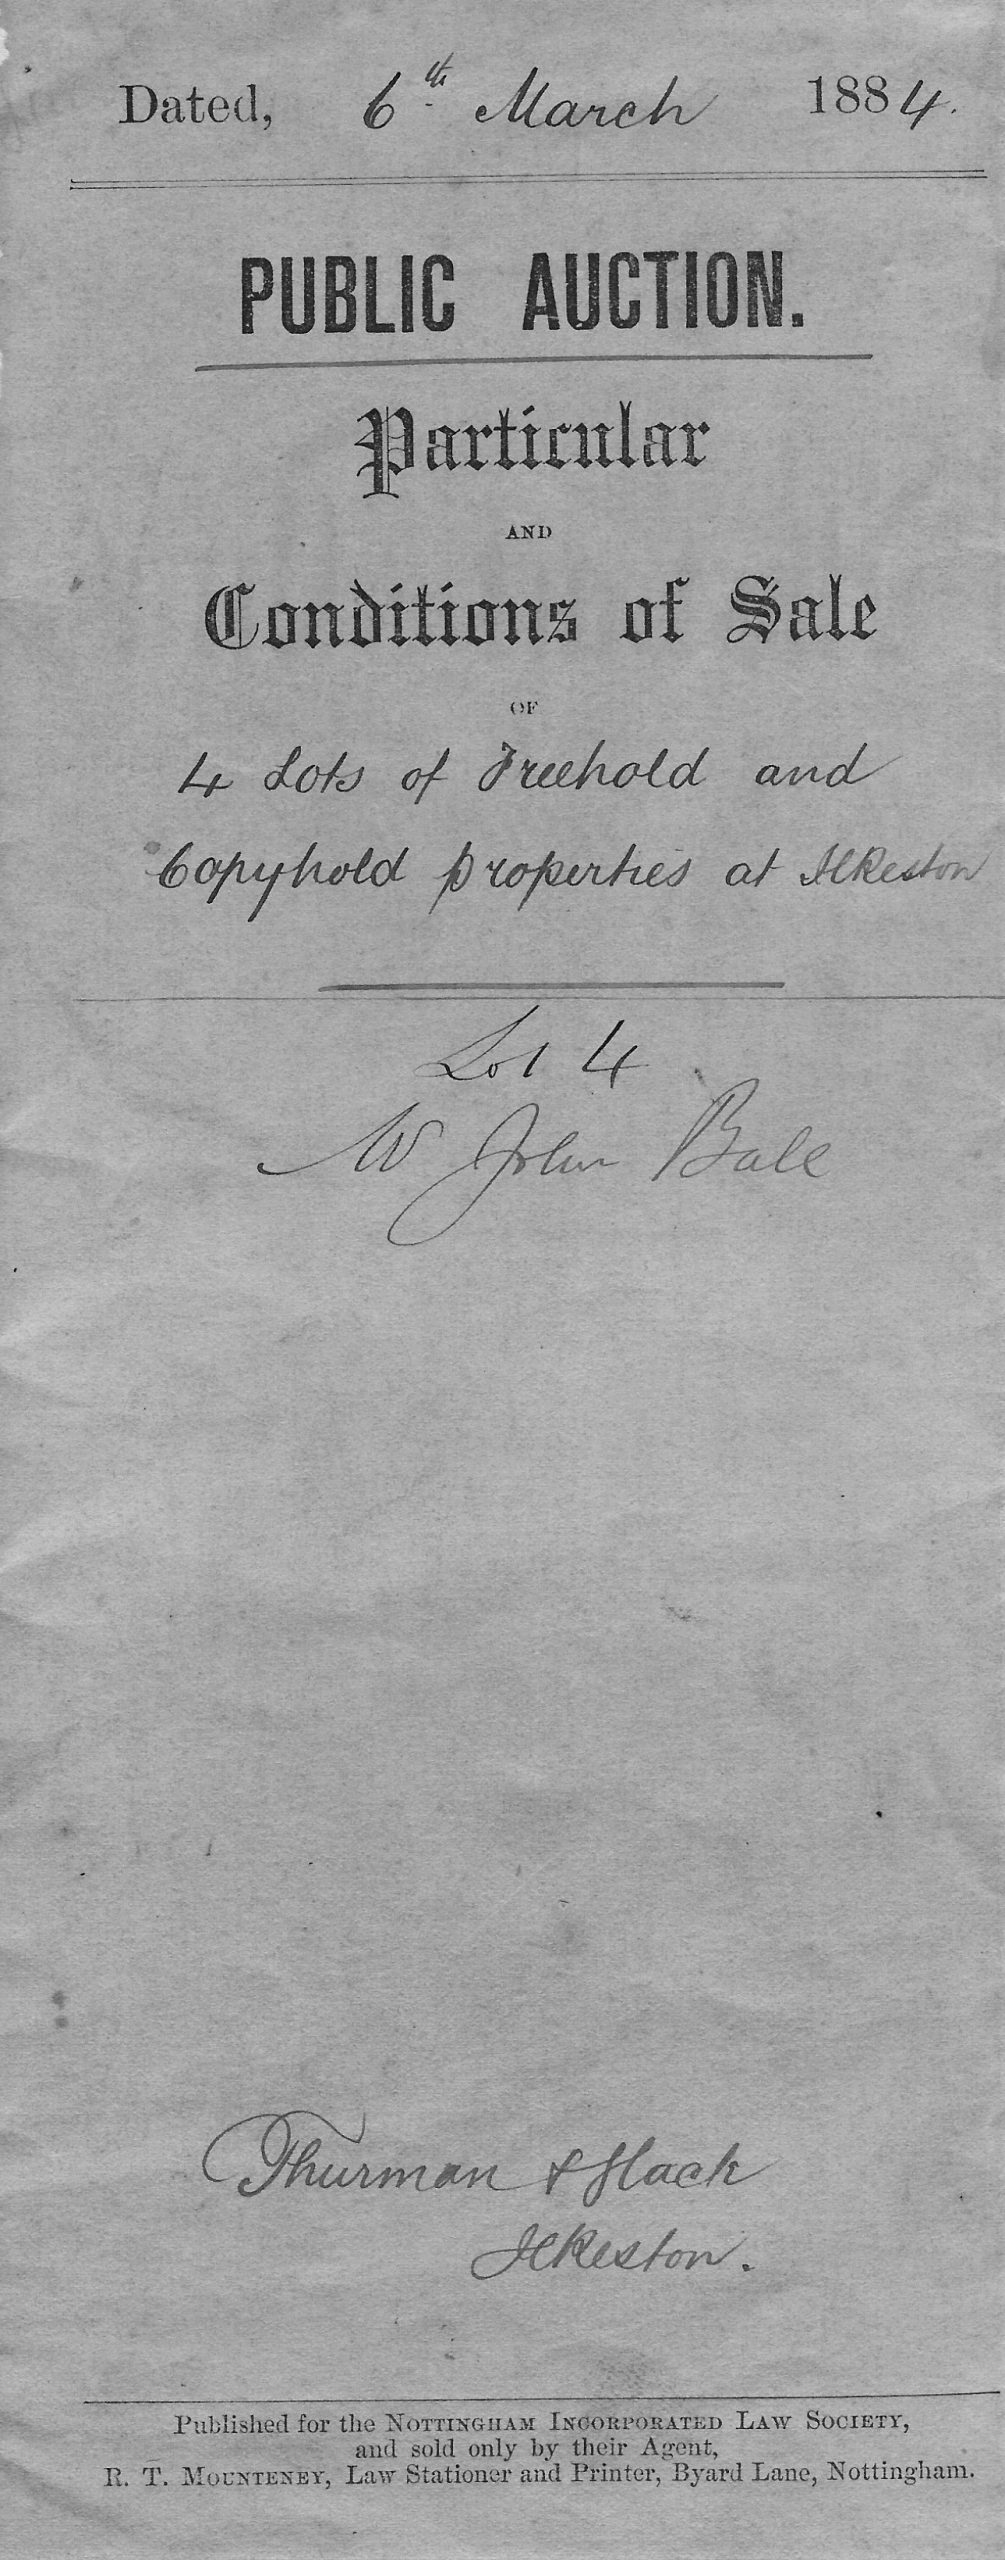 Dated, 6th March 1884.
PUBLIC AUCTION.
Particular
AND
Conditions of Sale
OF
4 Lots of Freehold and
Copyhold properties at Ilkeston
Lot 4
John Ball
Thurman & Slack
Ilkeston.
Published for the NOTTINGHAM INCORPORATED LAW SOCIETY,
and sold only by their Agent,
R. T. MOUNTENEY, Law Stationer and Printer, Byard Lane, Nottingham.